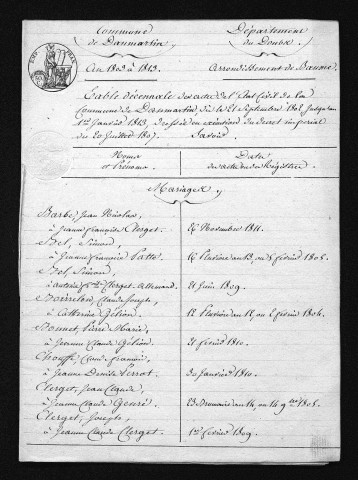 Commune
de Dammartin
Département
du Doubs
An 1802 à 1813.
Arrondissement de Baume
Table décennale des actes de l'Etat Civil de la
Commune de Dammartin, du 21 Septembre 1802 jusqu'au
1er Janvier 1813, dressée en exécution du décret impérial
du 20 Juillet 1807. Savoir
Noms
et Prénoms
Date
des actes ou des Registres
Mariages
Barbe, Jean Nicolas,
à Jeanne françoise Clerget. Novembre 1811.
Bel, Simon,
à Jeanne françoise Patte. 16 Pluviose an 13, ou 5 février 1805.
Bel, Simon,
Clerget Allemand. 21 Juin 1809.
Claude Joseph,
à Catherine Gélion. 12 Pluviose an 12, ou 2 février 1804.
Bonnet, Pierre Marie,
à Jeanne Claude Gélion. 21 février 1810.
Chouffe, Claude françois,
à Jeanne Denise Perrot. 30 Janvier 1810.
Clerget, Jean Claude,
à Jeanne Claude 23 Brumaire an 14, ou 14 9bre 1805.
Clerget, Joseph,
à Jeanne Claude Clerget. 1er février 1809.